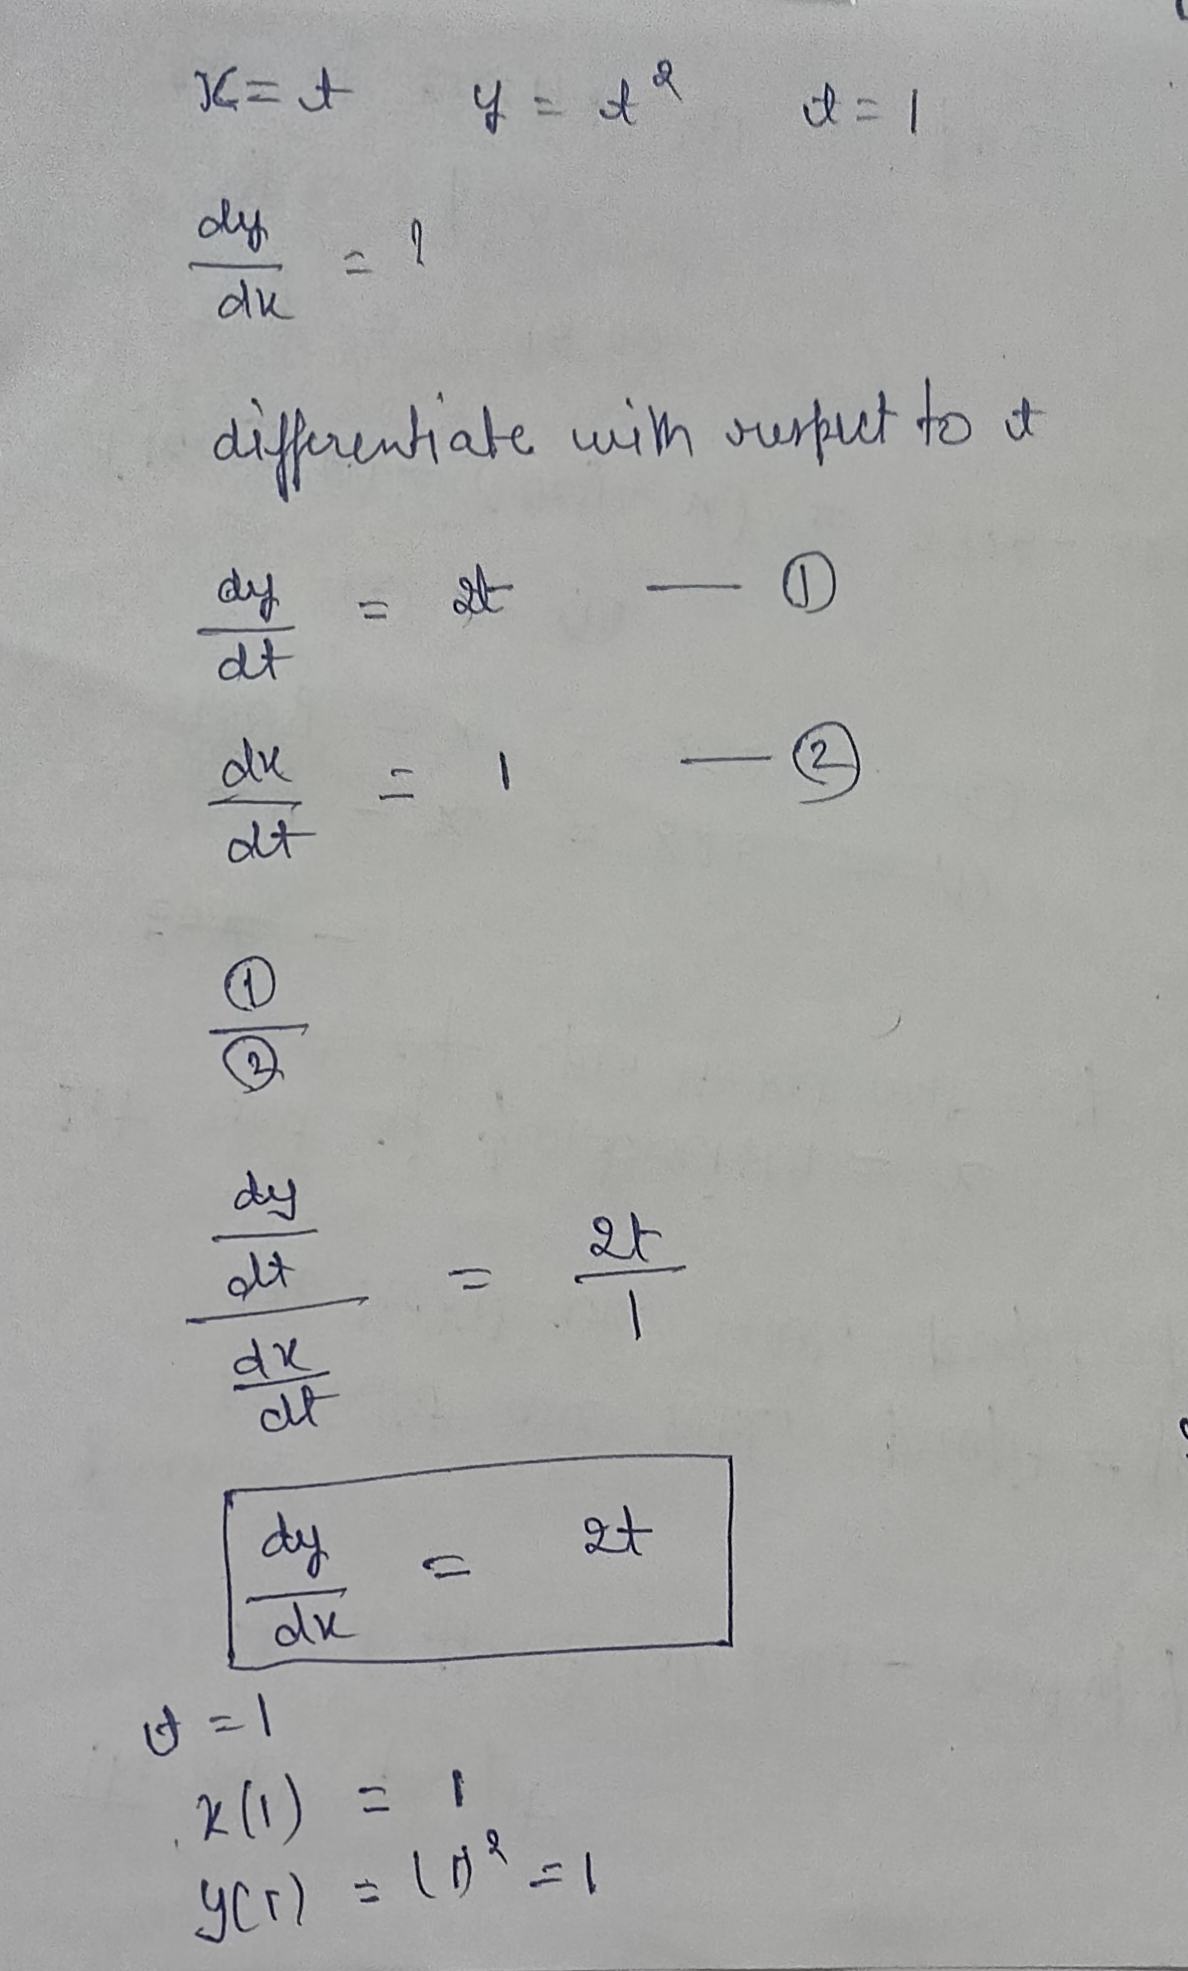 x = t y = t² t = 1
dy/dx = ?
differentiate with respect to t
dy/dt = 2t — ①
dx/dt = 1 — ②
①/②
(dy/dt)/(dx/dt) = 2t/1
dy/dx = 2t
t = 1
x(1) = 1
y(1) = (1)² = 1